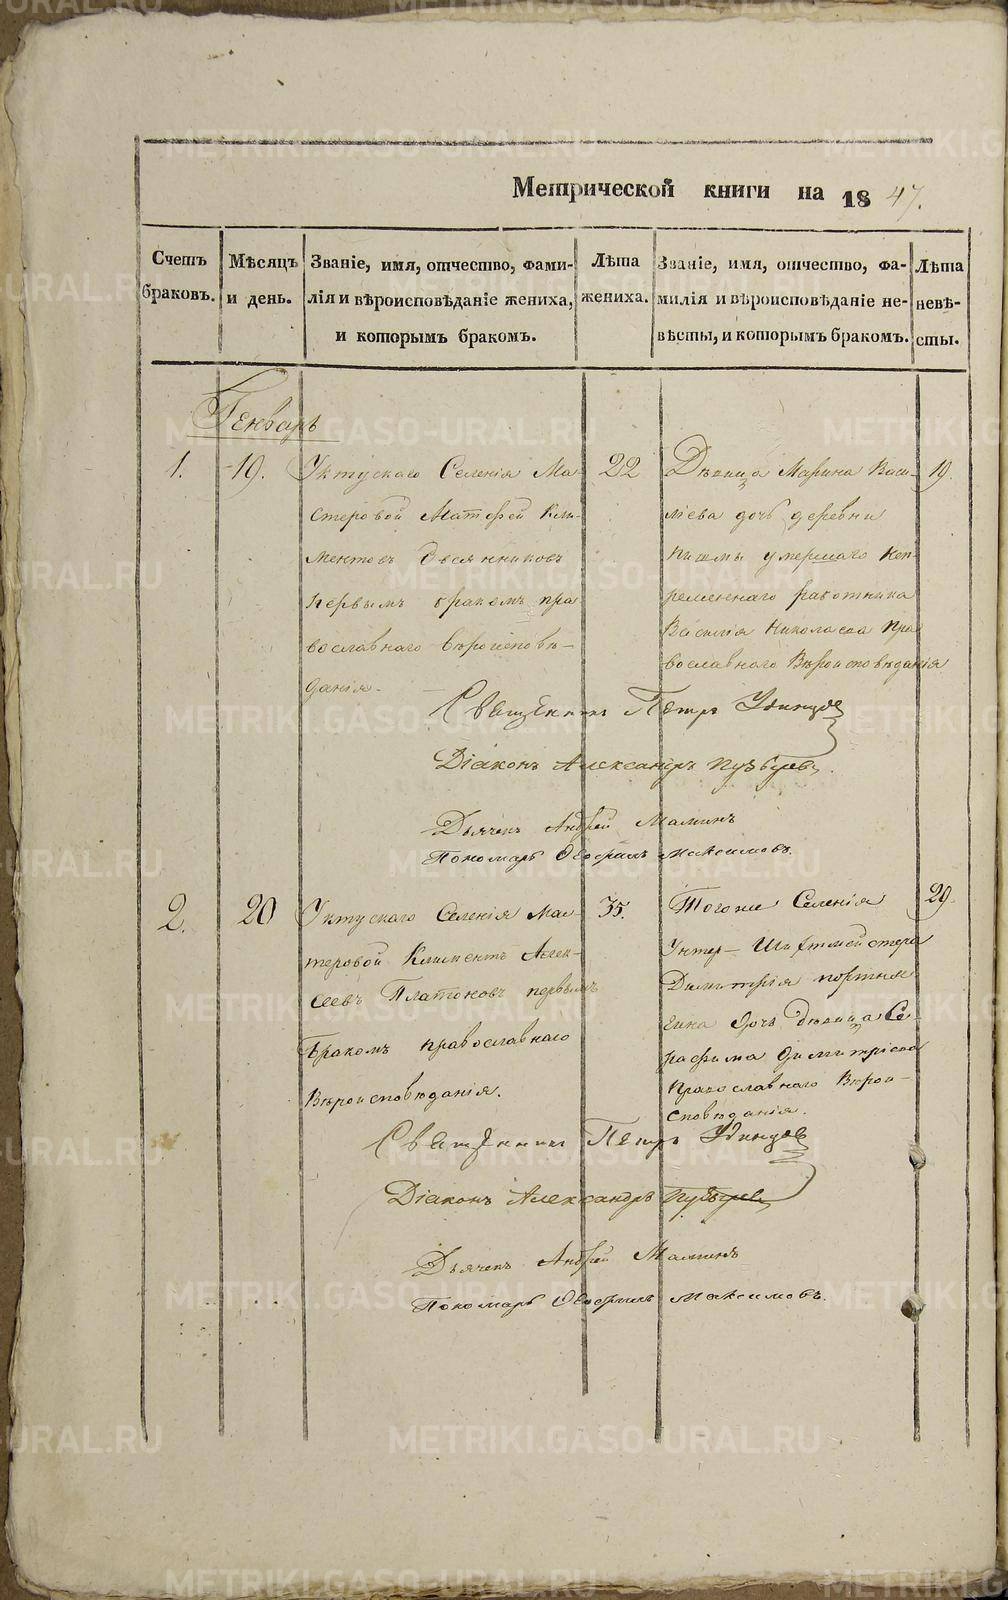 Метрической книги на 1847.
Счетъ браковъ.
Мѣсяцъ и день.
Званіе, имя, отчество, фами-
лія и вѣроисповѣданіе жениха,
и которымъ бракомъ.
Лѣта
жениха.
Званіе, имя, отчество, фа-
милія и вѣроисповѣданіе не-
вѣсты, и которымъ бракомъ.
Лѣта
невѣ-
сты.
Генварь
1.
19.
Уктускаго Селенія Ма-
стеровой Матфей Кли-
ментовъ Овсянниковъ
первымъ бракомъ пра
вославнаго вѣроисповѣ-
данія.
22
Дѣвица Марина Васи-
ліева дочь деревни
умершаго Неп-
ремѣннаго работника
Василія Николаева Пра
вославнаго Вѣроисповѣданія
19.
Священникъ Петръ Удинцов
Діаконъ Александръ Пузырев
Дьячекъ Андрей Маминъ
Пономарь Ѳеофилъ Максимовъ.
2.
20
Уктускаго Селенія Мас-
теровой Климентъ Алек-
сеевъ Платоновъ первымъ
Бракомъ православнаго
Вѣроисповѣданія.
35.
Тогоже Селенія
Унтер-Шихтмейстера
Димитрія портня
гина дочь дѣвица Се-
рафима Димитріева
Православнаго Вѣрои-
сповѣданія.
29.
Священникъ Петръ Удинцов
Діаконъ Александръ Пузырев
Дьячекъ Андрей Маминъ
Пономарь Ѳеофилъ Максимовъ.
METRIKI.GASO-URAL.RU